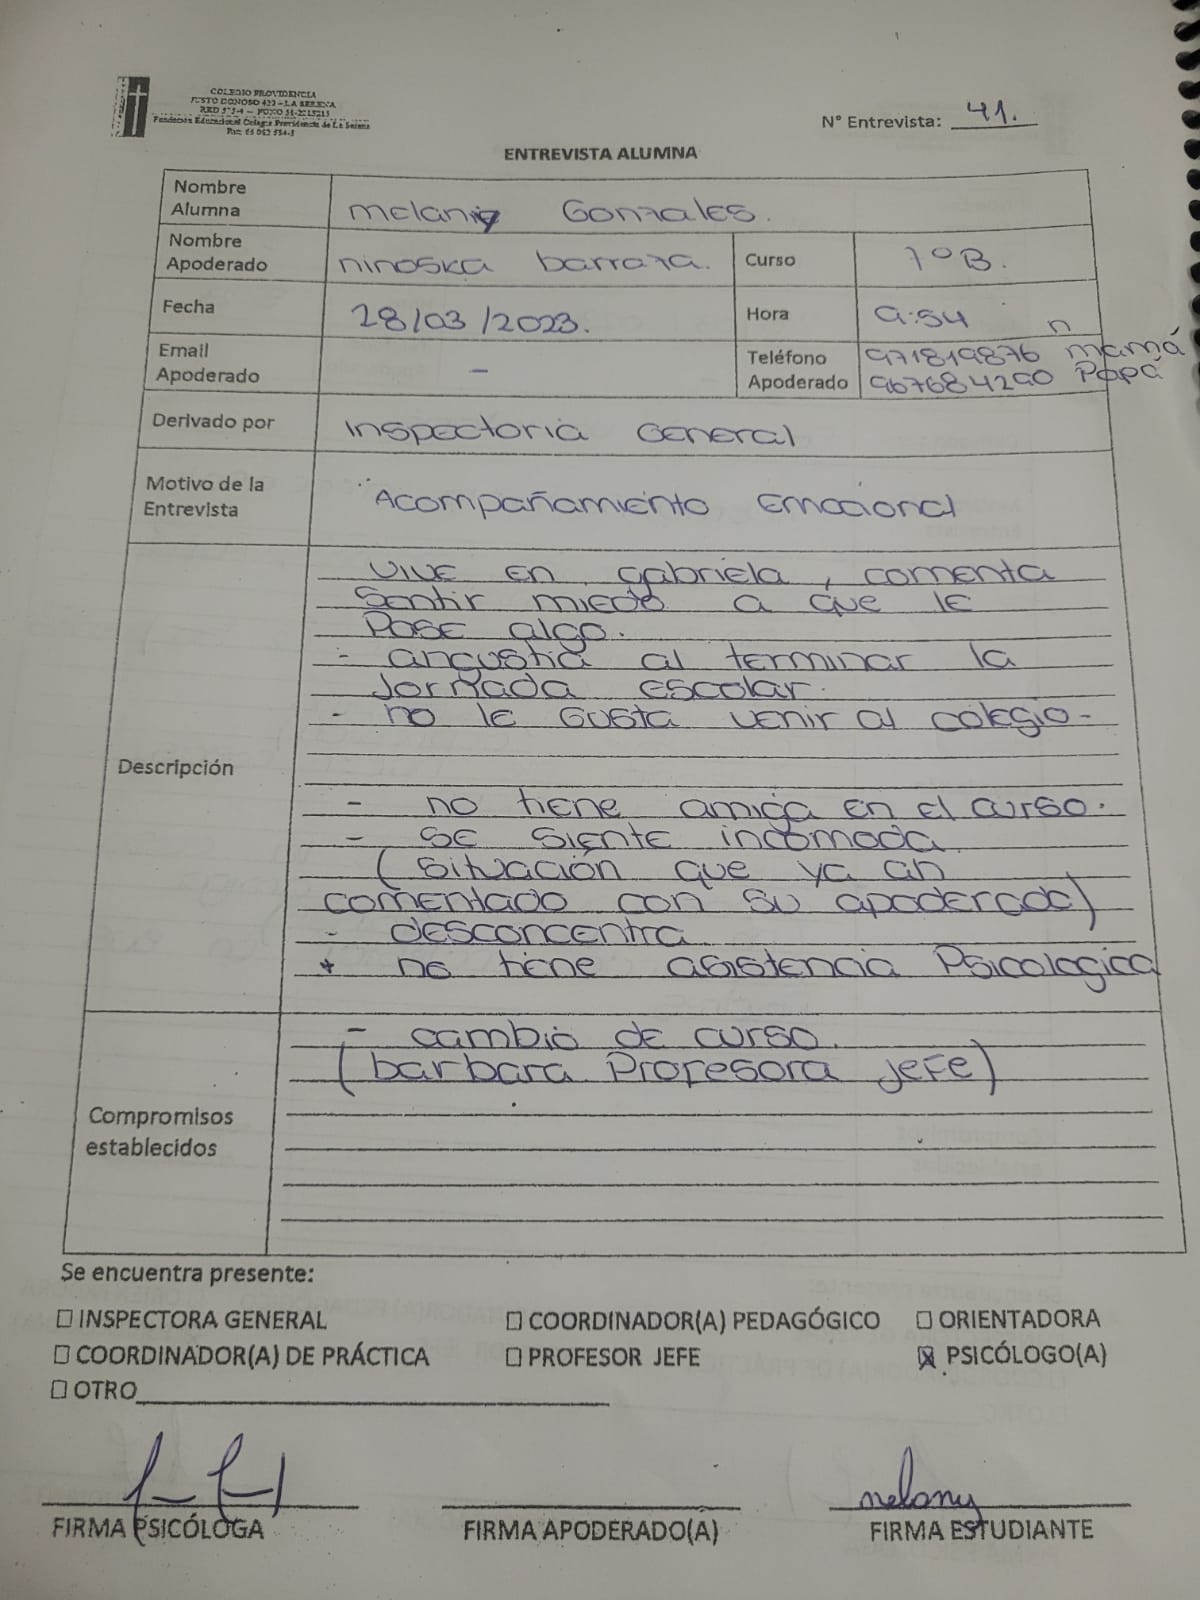 COLEGIO PROVIDENCIA
JUSTO DONOSO 420 - LA SERENA
Fundación Educacional Colegio Providencia de La Serena
N° Entrevista: 41.
ENTREVISTA ALUMNA
Nombre Alumna melany Gonzales.
Nombre Apoderado ninoska barraza. Curso 1°B.
Fecha 28/03/2023. Hora 9:54
Email Apoderado - Teléfono Apoderado 971819876 mamá
967684290 Papá
Derivado por Inspectoria General
Motivo de la Entrevista Acompañamiento Emocional
Descripción
VIVE EN gabriela, comenta
Sentir miedo a que le
Pase algo.
- angustia al terminar la
Jornada escolar.
- no le gusta venir al colegio-
- no tiene amiga en el curso.
- se siente incomoda
(situación que ya an
comentado con su apoderado)
- desconcentra
* no tiene asistencia Psicologica
Compromisos establecidos
- cambio de curso.
(barbara Profesora jefe)
Se encuentra presente:
☐ INSPECTORA GENERAL ☐ COORDINADOR(A) PEDAGÓGICO ☐ ORIENTADORA
☐ COORDINADOR(A) DE PRÁCTICA ☐ PROFESOR JEFE ☒ PSICÓLOGO(A)
☐ OTRO
melany
FIRMA PSICÓLOGA FIRMA APODERADO(A) FIRMA ESTUDIANTE